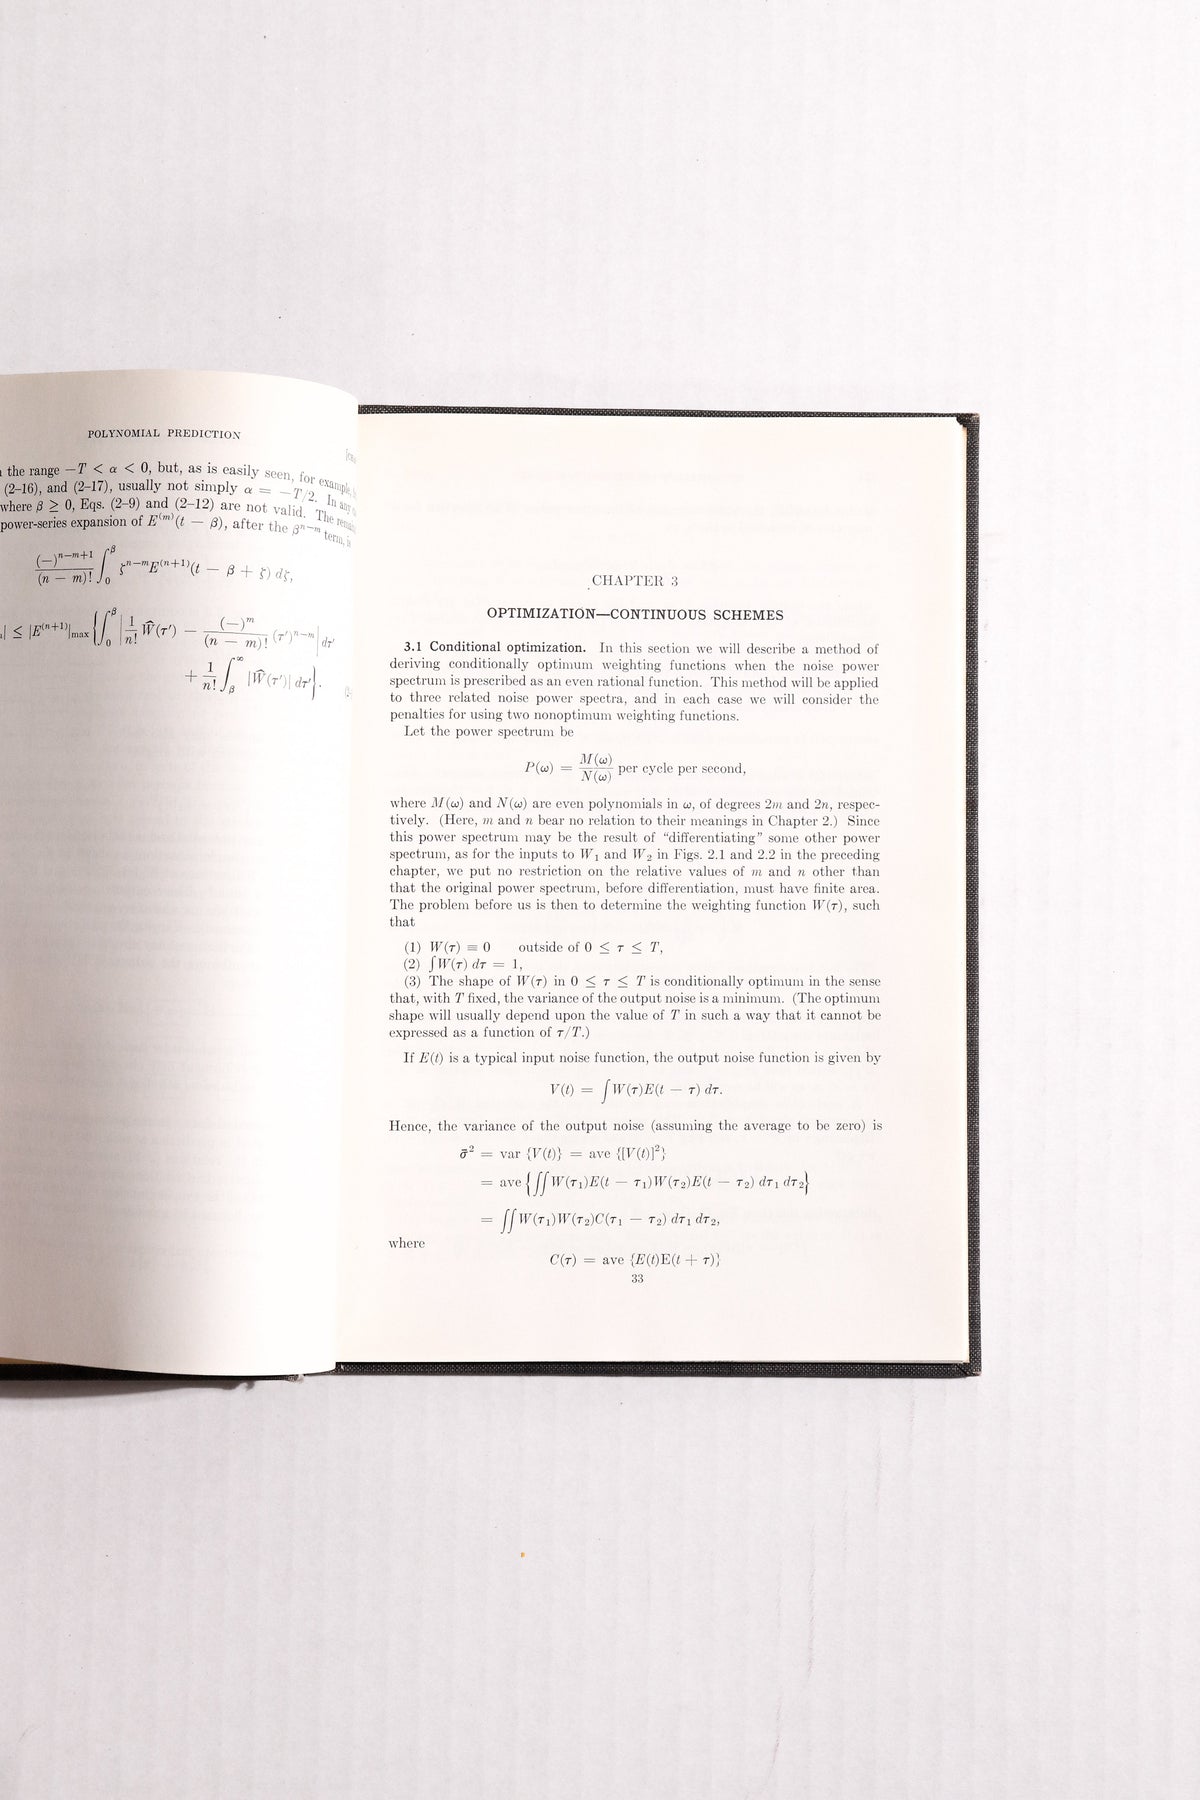 POLYNOMIAL PREDICTION
the range −T < α < 0, but, as is easily seen, for example,
(2–16), and (2–17), usually not simply α = −T/2. In any
where β ≥ 0, Eqs. (2–9) and (2–12) are not valid. The
power-series expansion of E^(m)(t − β), after the β^{n−m} term, is
(−)^{n−m+1}/(n − m)! ∫_0^β ζ^{n−m}E^{(n+1)}(t − β + ζ) dζ,
| ≤ |E^{(n+1)}|_max {∫_0^β |1/n! Ŵ(τ′) − (−)^m/(n − m)! (τ′)^{n−m}| dτ′
+ 1/n! ∫_β^∞ |Ŵ(τ′)| dτ′}.
CHAPTER 3
OPTIMIZATION—CONTINUOUS SCHEMES
3.1 Conditional optimization. In this section we will describe a method of
deriving conditionally optimum weighting functions when the noise power
spectrum is prescribed as an even rational function. This method will be applied
to three related noise power spectra, and in each case we will consider the
penalties for using two nonoptimum weighting functions.
Let the power spectrum be
P(ω) = M(ω)/N(ω) per cycle per second,
where M(ω) and N(ω) are even polynomials in ω, of degrees 2m and 2n, respec-
tively. (Here, m and n bear no relation to their meanings in Chapter 2.) Since
this power spectrum may be the result of “differentiating” some other power
spectrum, as for the inputs to W₁ and W₂ in Figs. 2.1 and 2.2 in the preceding
chapter, we put no restriction on the relative values of m and n other than
that the original power spectrum, before differentiation, must have finite area.
The problem before us is then to determine the weighting function W(τ), such
that
(1) W(τ) ≡ 0 outside of 0 ≤ τ ≤ T,
(2) ∫W(τ) dτ = 1,
(3) The shape of W(τ) in 0 ≤ τ ≤ T is conditionally optimum in the sense
that, with T fixed, the variance of the output noise is a minimum. (The optimum
shape will usually depend upon the value of T in such a way that it cannot be
expressed as a function of τ/T.)
If E(t) is a typical input noise function, the output noise function is given by
V(t) = ∫W(τ)E(t − τ) dτ.
Hence, the variance of the output noise (assuming the average to be zero) is
σ̄² = var {V(t)} = ave {[V(t)]²}
= ave {∫∫W(τ₁)E(t − τ₁)W(τ₂)E(t − τ₂) dτ₁ dτ₂}
= ∫∫W(τ₁)W(τ₂)C(τ₁ − τ₂) dτ₁ dτ₂,
where
C(τ) = ave {E(t)E(t + τ)}
33